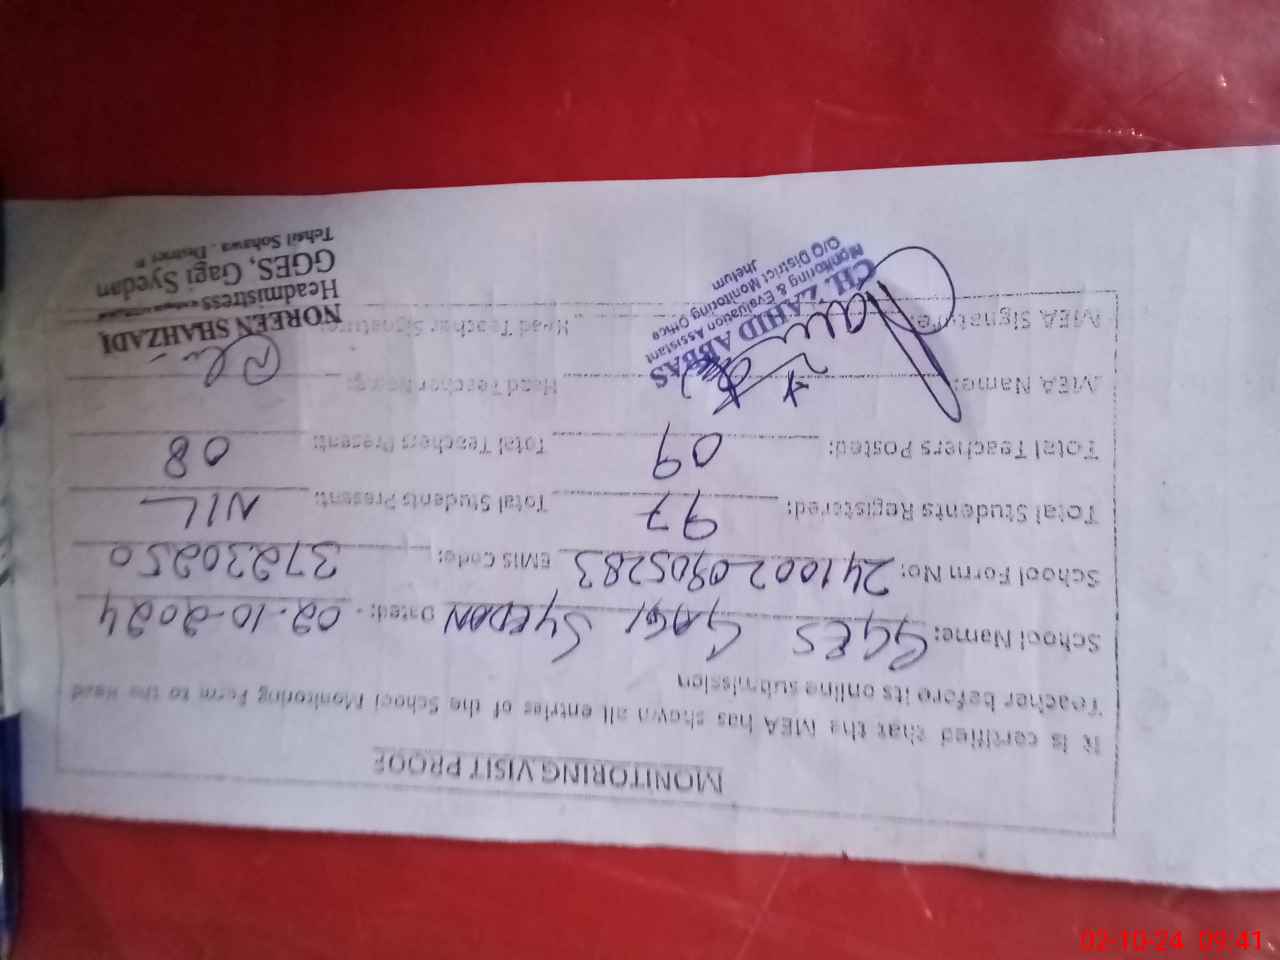 MONITORING VISIT PROOF
It is certified that the MEA has shown all entries of the School Monitoring Form to the Head
Teacher before its online submission
School Name: GGES GAGI SYEDAN Dated: - 02-10-2024
School Form No: 2410020905283 EMIS Code: 37230250
Total Students Registered: 97 Total Students Present: NIL
Total Teachers Posted: 09 Total Teachers Present: 08
MEA Name: Head Teacher Name:
MEA Signature: Head Teacher Signature:
CH. ZAHID ABBAS
Monitoring & Evaluation Assistant
O/O District Monitoring Office
Jhelum
NOREEN SHAHZADI
Headmistress
GGES, Gagi Syedan
Tehsil Sohawa . District
02-10-24 09:41